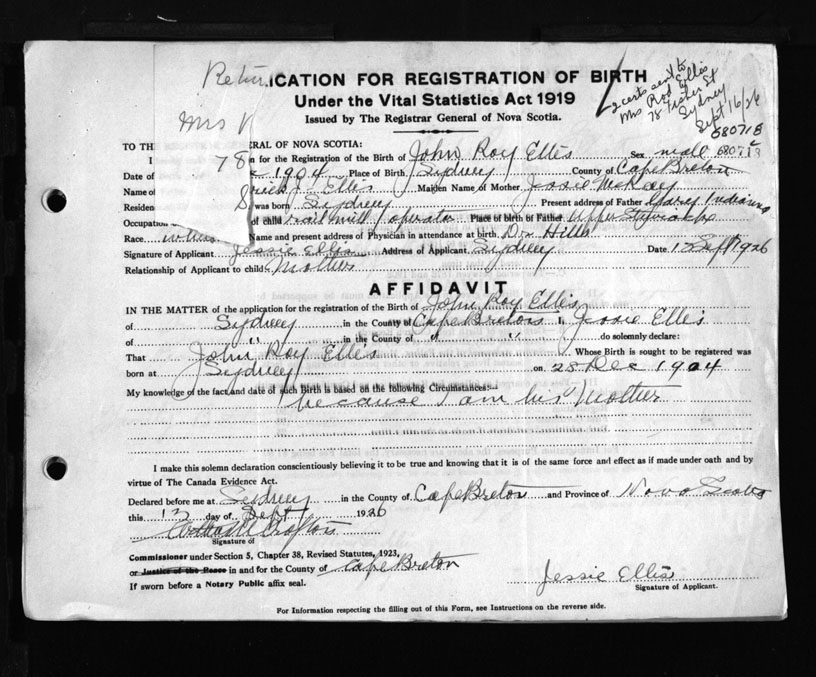 Retur
ICATION FOR REGISTRATION OF BIRTH
Under the Vital Statistics Act 1919
Issued by The Registrar General of Nova Scotia.
2 certs sent to
Mrs Rod Ellis
78 St
Sydney
Sept 16/26
680718
680713
Mrs
78
8
TO TH RAL OF NOVA SCOTIA:
I n for the Registration of the Birth of John Roy Ellis Sex male
Date of 1904 Place of Birth Sydney County of Cape Breton
Name of rick J. Ellis Maiden Name of Mother Jessie McKay
Residen was born Sydney Present address of Father Gary Indiana
Occupation of child rail mill operator Place of birth of Father Upper Stewiacke
Race white Name and present address of Physician in attendance at birth Dr Hills
Signature of Applicant Jessie Ellis Address of Applicant Sydney Date 1 Sept 1926
Relationship of Applicant to child Mother
AFFIDAVIT
IN THE MATTER of the application for the registration of the Birth of John Roy Ellis
of Sydney in the County of Cape Breton I, Jessie Ellis
of " in the County of " " do solemnly declare:
That John Roy Ellis Whose Birth is sought to be registered was
born at Sydney on 28 Dec 1904
My knowledge of the fact and date of such Birth is based on the following Circumstances:—
because I am his Mother
I make this solemn declaration conscientiously believing it to be true and knowing that it is of the same force and effect as if made under oath and by
virtue of The Canada Evidence Act.
Declared before me at Sydney in the County of Cape Breton and Province of Nova Scotia
this 13 day of Sept 1926
Signature of
Commissioner under Section 5, Chapter 38, Revised Statutes, 1923,
or Justice of the Peace in and for the County of Cape Breton
If sworn before a Notary Public affix seal.
Jessie Ellis
Signature of Applicant.
For Information respecting the filling out of this Form, see Instructions on the reverse side.